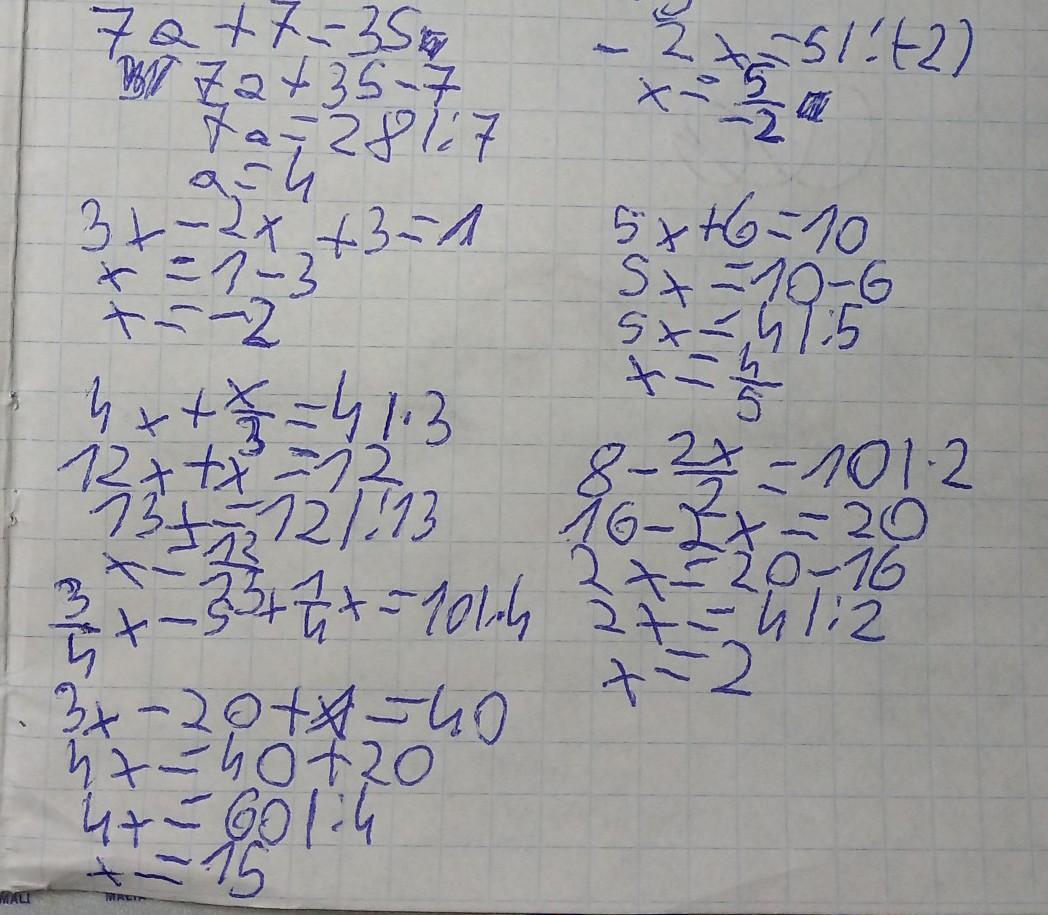 7a + 7 = 35
7a + 35 - 7
7a = 28 |:7
a = 4
3x - 2x + 3 = 1
x = 1 - 3
x = -2
4x + x/3 = 4 |·3
12x + x = 12
13x = 12 |:13
x = 12/13
3/4 x - 5 + 1/4 x = 10 |·4
3x - 20 + x = 40
4x = 40 + 20
4x = 60 |:4
x = 15
-2x = 5 |:(-2)
x = 5/-2
5x + 6 = 10
5x = 10 - 6
5x = 4 |:5
x = 4/5
8 - 2x/2 = 10 |·2
16 - 2x = 20
2x = 20 - 16
2x = 4 |:2
x = 2